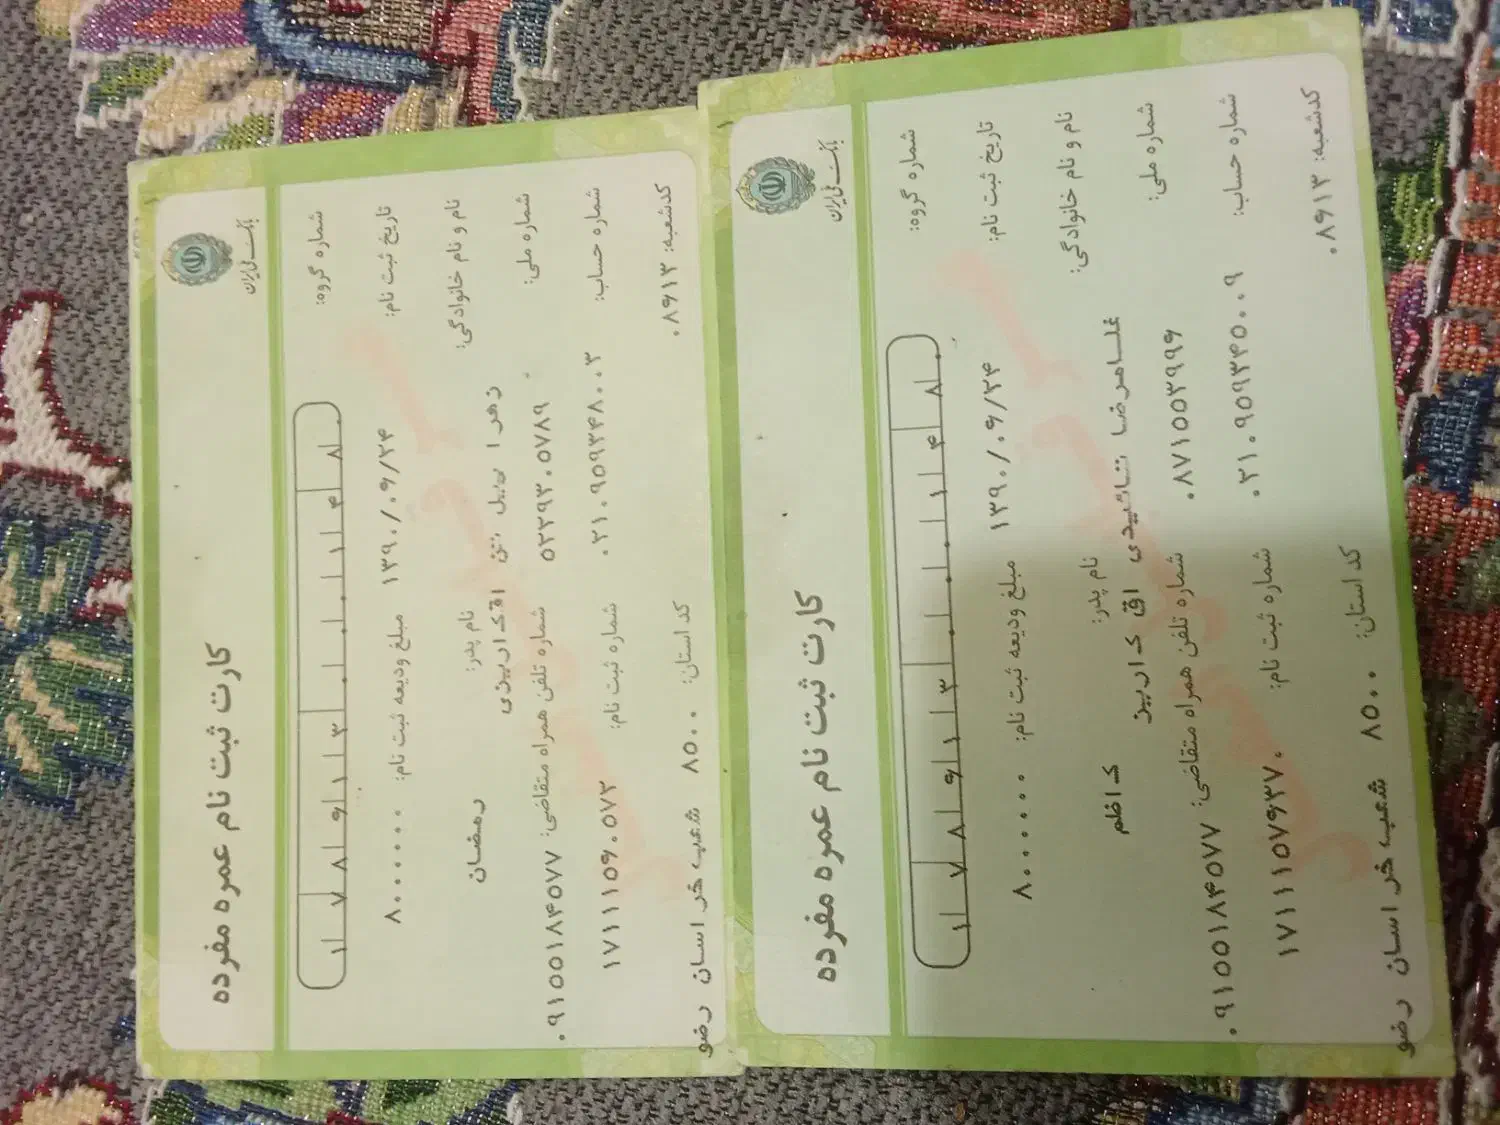 کارت ثبت نام عمره مفرده
بانک ملی ایران
شماره گروه: ۱۷۸۶۱۳۰۰۰۱۴۸۰
تاریخ ثبت نام: ۱۳۹۰/۰۶/۲۴ مبلغ ودیعه ثبت نام: ۸۰۰۰۰۰۰
نام و نام خانوادگی: زهرا اقکاریزی نام پدر: رمضان
شماره ملی: ۵۲۲۹۳۰۵۷۸۹ شماره تلفن همراه متقاضی: ۰۹۱۵۵۱۸۴۵۷۷
شماره حساب: ۰۲۱۰۹۵۹۳۴۸۰۰۳ شماره ثبت نام: ۱۷۱۱۱۵۶۰۵۷۳
کدشعبه: ۰۸۶۱۳ کد استان: ۸۵۰۰ شعب خراسان رضو
کارت ثبت نام عمره مفرده
بانک ملی ایران
شماره گروه: ۱۷۸۶۱۳۰۰۰۱۴۸۰
تاریخ ثبت نام: ۱۳۹۰/۰۶/۲۴ مبلغ ودیعه ثبت نام: ۸۰۰۰۰۰۰
نام و نام خانوادگی: غلامرضا تائیدی اق کاریز نام پدر: کاظم
شماره ملی: ۰۸۷۱۵۵۳۹۹۶ شماره تلفن همراه متقاضی: ۰۹۱۵۵۱۸۴۵۷۷
شماره حساب: ۰۲۱۰۹۵۹۳۴۵۰۰۹ شماره ثبت نام: ۱۷۱۱۱۵۷۶۳۷۰
کدشعبه: ۰۸۶۱۳ کد استان: ۸۵۰۰ شعب خراسان رضو